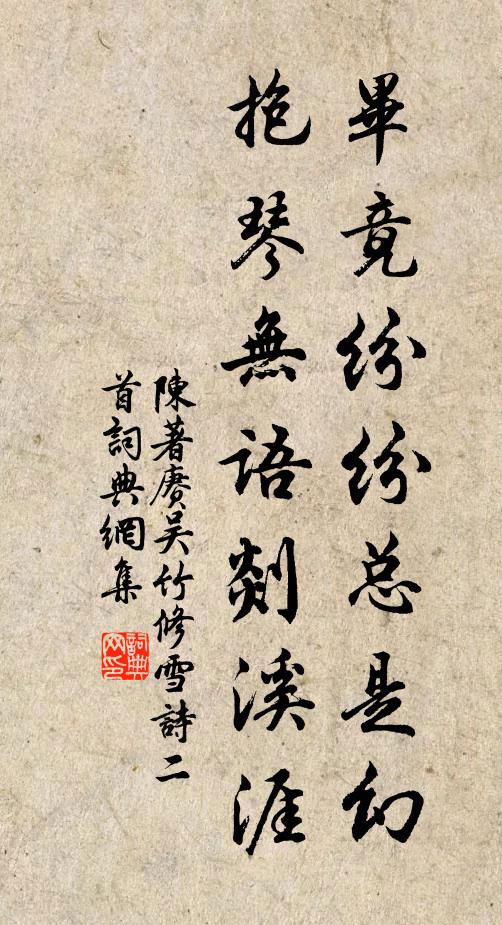 畢竟紛紛总是幻
抱琴無語剡溪涯
陳著賡吴竹修雪詩二
首詞典網集
詞典
网印